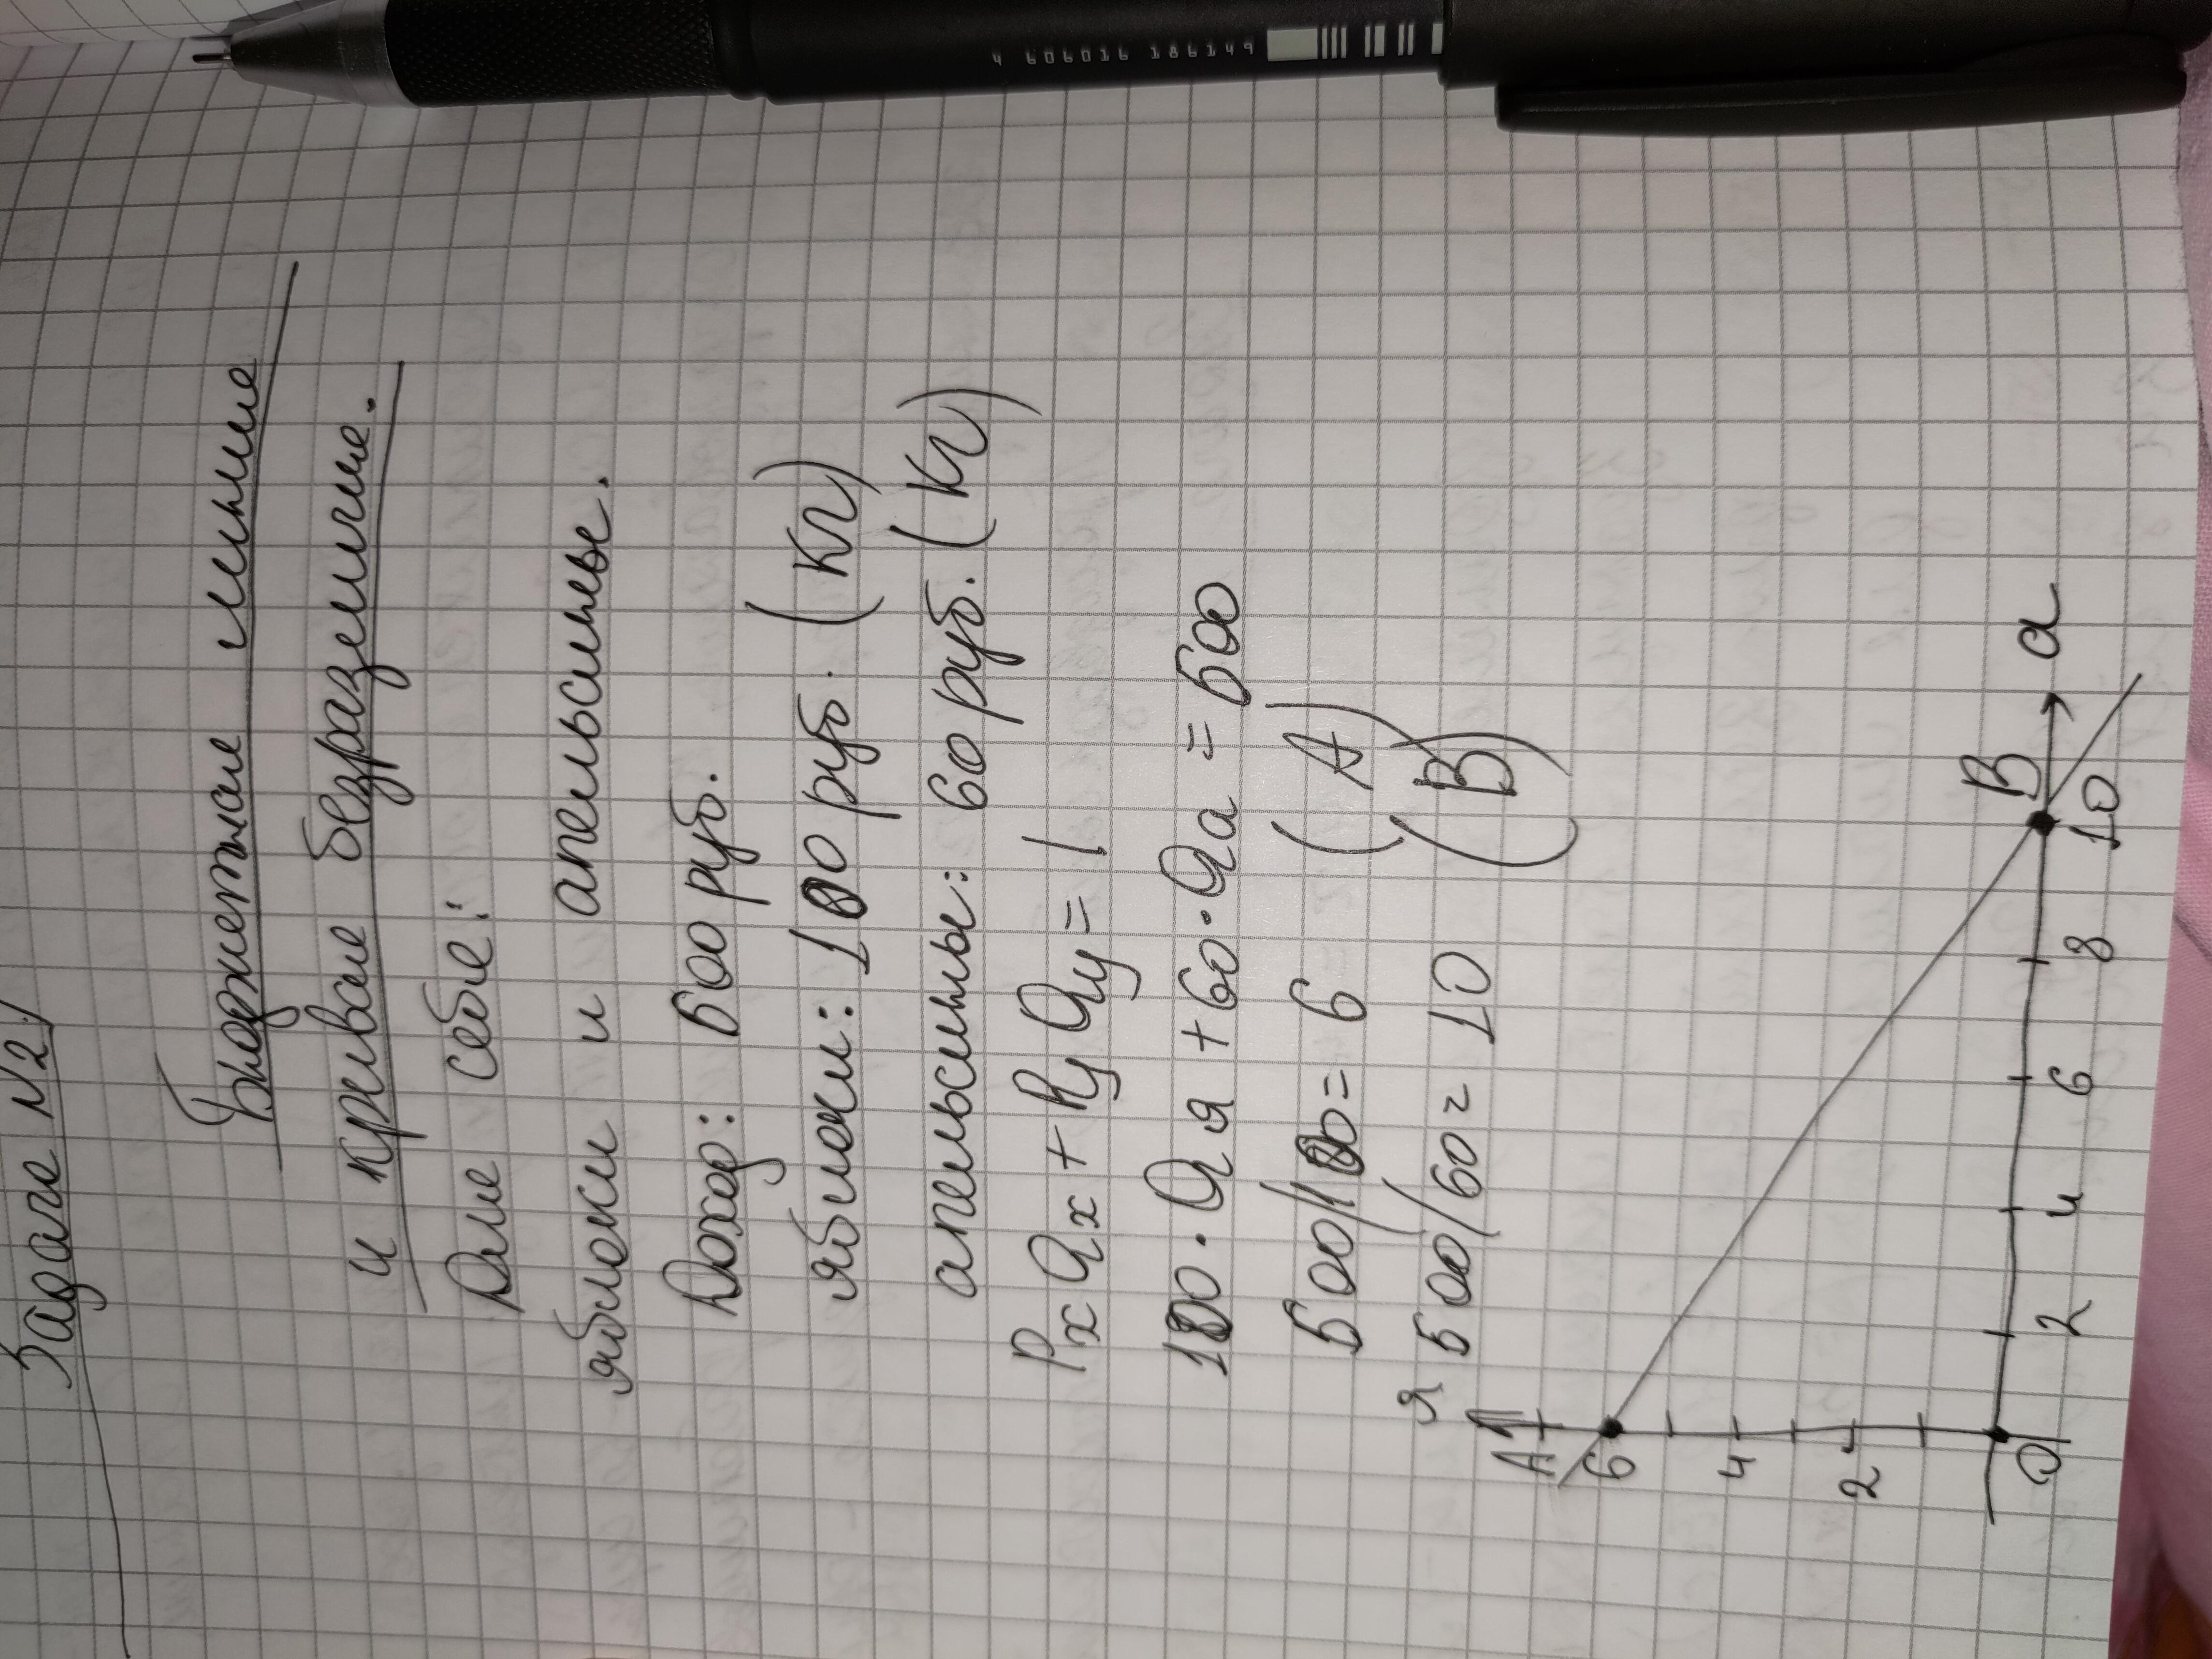 Задаче №2.
Бюджетные линии
и кривые безразличие.
Для себе:
яблоки и апельсины.
Доход: 600 руб.
яблоки: 100 руб. (кг)
апельсины: 60 руб. (кг)
PxQx + PyQy = I
100·Qя + 60·Qа = 600
600/100 = 6 (A)
600/60 = 10 (B)
я
A
6
4
2
0
2
4
6
8
10
B
а
4 606016 186149